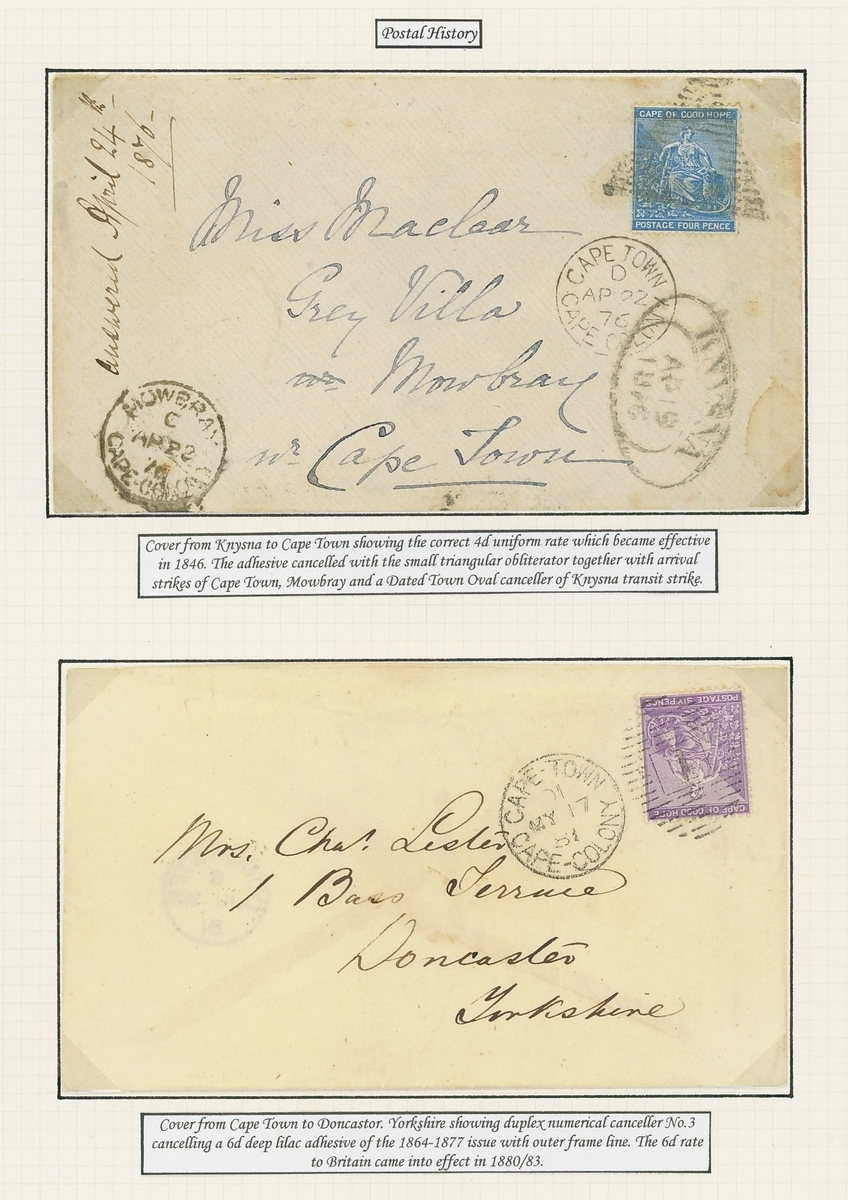 Postal History
answered April 24th
1876
CAPE OF GOOD HOPE
POSTAGE FOUR PENCE
Miss Maclear
Grey Villa
Mowbray
nr Cape Town
CAPE TOWN
D
AP 22
76
CAPE COLONY
KNYSNA
AP 19
1876
MOWBRAY
C
AP 22
CAPE-COLONY
Cover from Knysna to Cape Town showing the correct 4d uniform rate which became effective
in 1846. The adhesive cancelled with the small triangular obliterator together with arrival
strikes of Cape Town, Mowbray and a Dated Town Oval canceller of Knysna transit strike.
POSTAGE SIX PENCE
CAPE OF GOOD HOPE
CAPE-TOWN
MY 17
81
CAPE-COLONY
Mrs. Chas. Lester
1 Bass Terrace
Doncaster
Yorkshire
Cover from Cape Town to Doncastor. Yorkshire showing duplex numerical canceller No.3
cancelling a 6d deep lilac adhesive of the 1864-1877 issue with outer frame line. The 6d rate
to Britain came into effect in 1880/83.